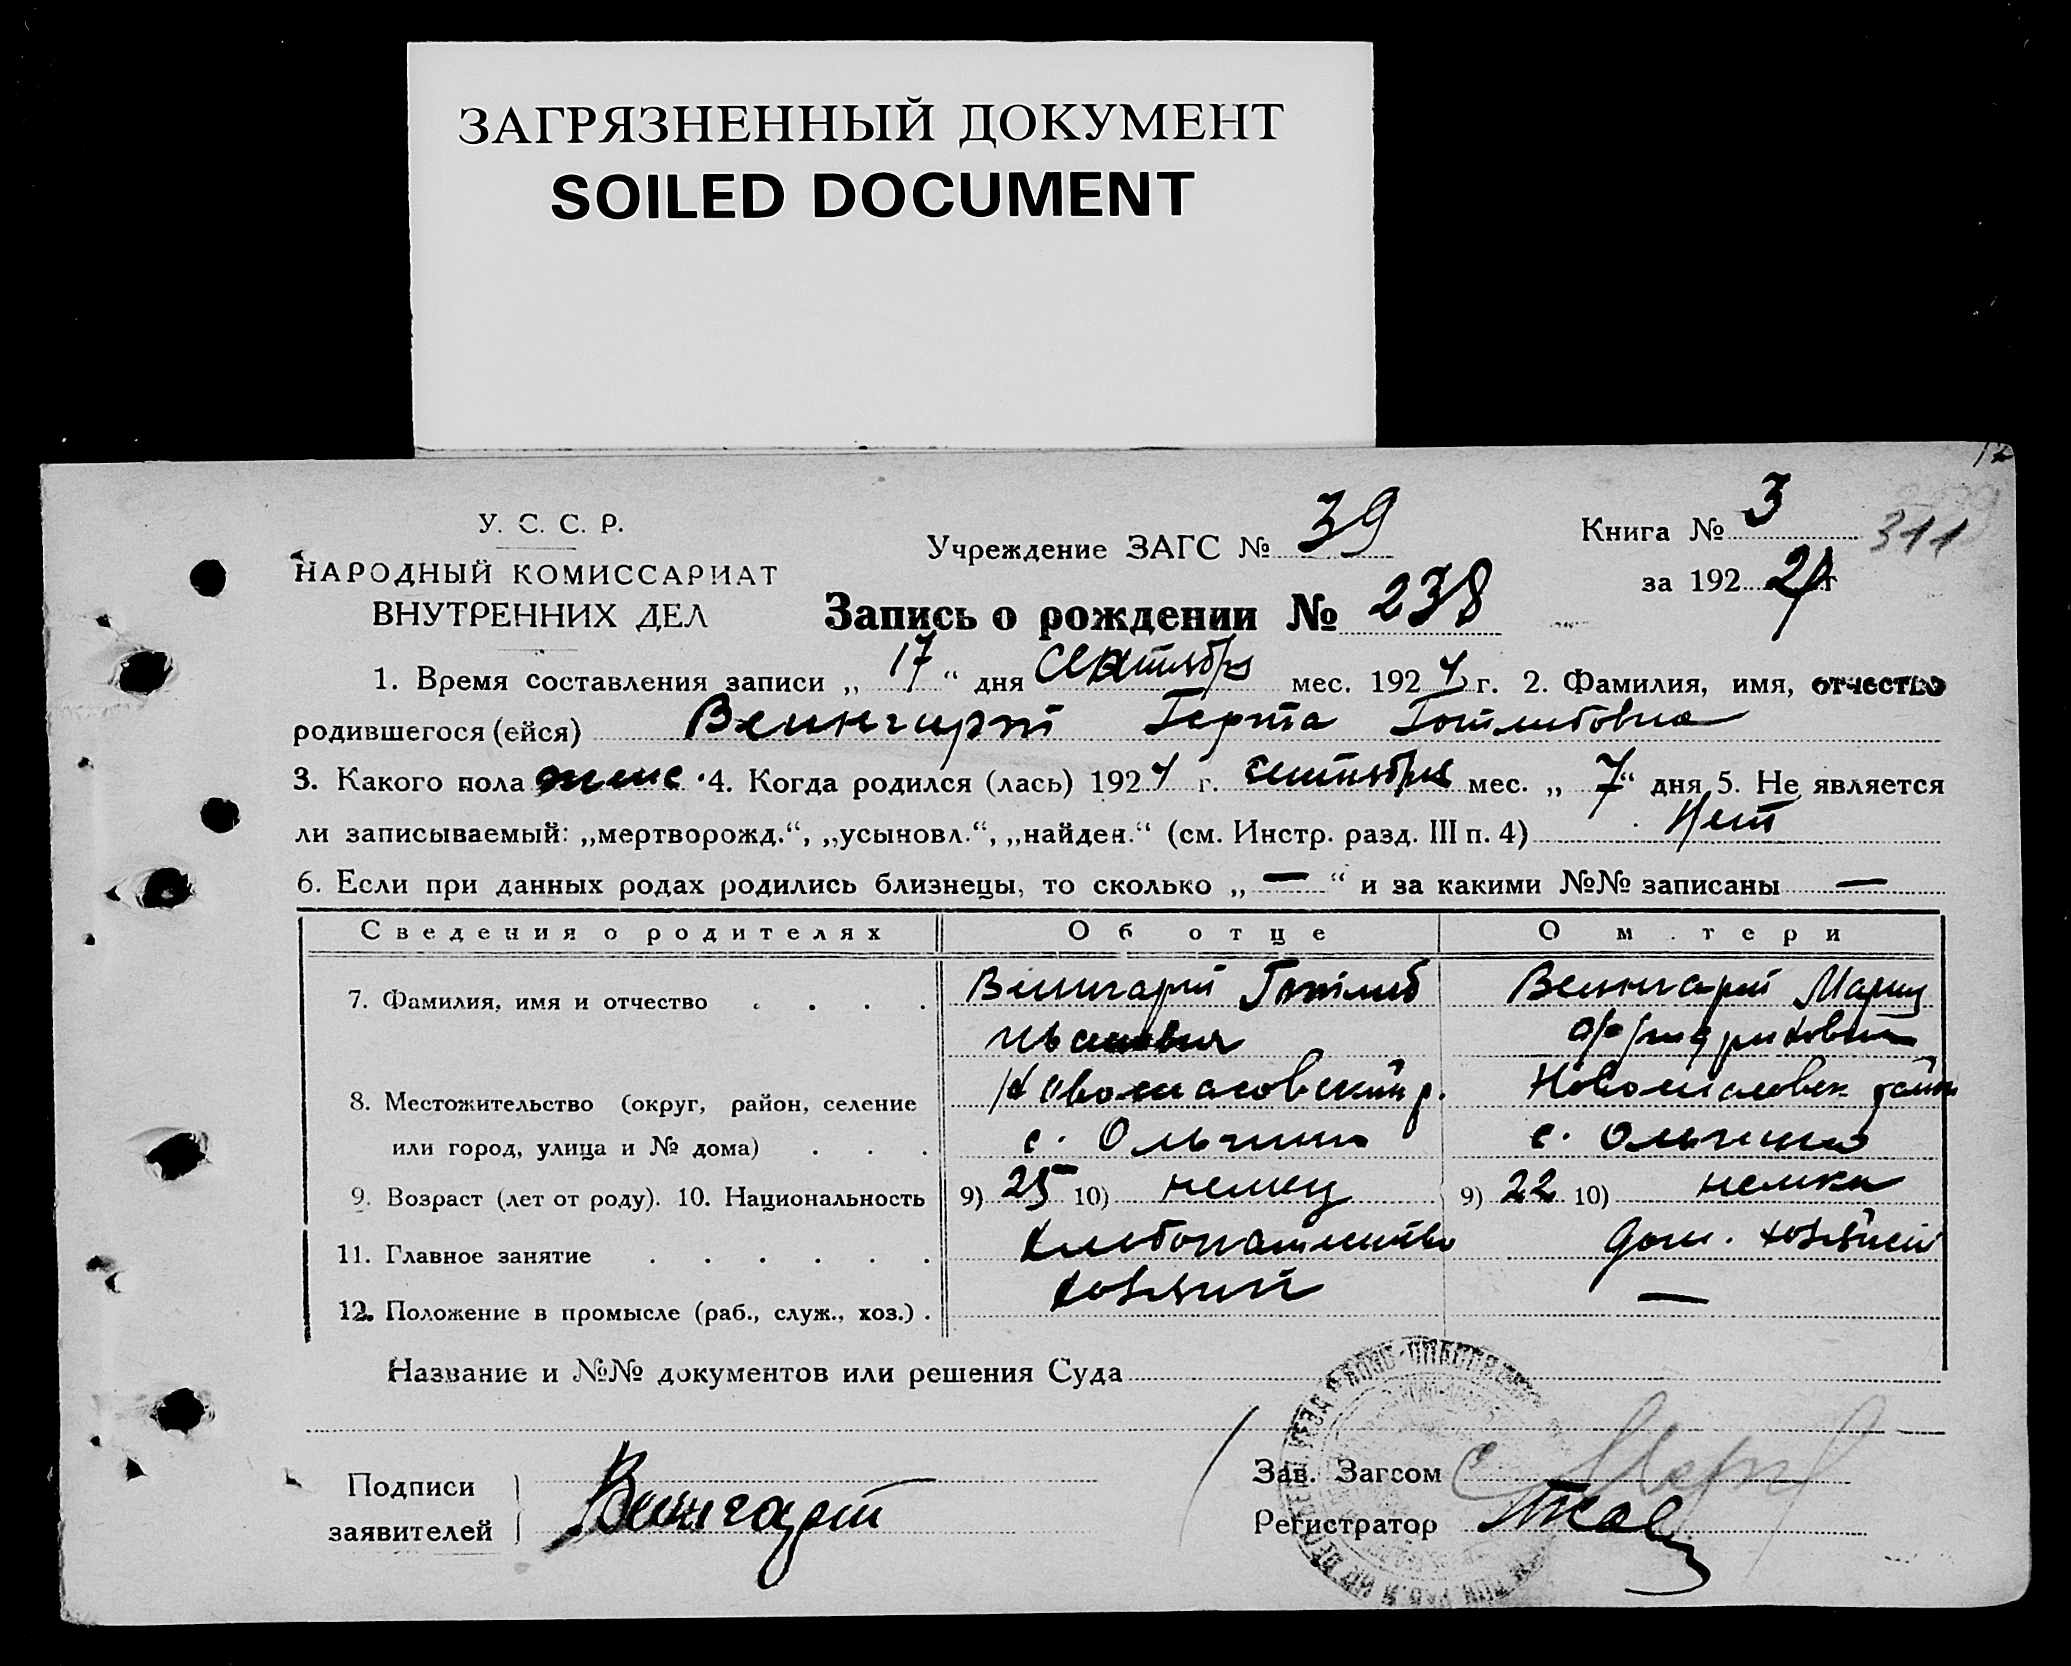 ЗАГРЯЗНЕННЫЙ ДОКУМЕНТ
SOILED DOCUMENT
У. С. С. Р.
НАРОДНЫЙ КОМИССАРИАТ
ВНУТРЕННИХ ДЕЛ
Учреждение ЗАГС № 39
Книга № 3
311
за 192 г.
Запись о рождении № 238
1. Время составления записи „ 17 “ дня сентября мес. 1924 г. 2. Фамилия, имя, отчество
родившегося (ейся) Веингарт Герта Готлибовна
3. Какого пола женс. 4. Когда родился (лась) 1924 г. сентября мес. „ 7 “ дня 5. Не является
ли записываемый: „мертворожд.“, „усыновл.“, „найден.“ (см. Инстр. разд. III п. 4) Нет
6. Если при данных родах родились близнецы, то сколько „ — “ и за какими №№ записаны —
Сведения о родителях Об отце О м тери
7. Фамилия, имя и отчество . . . . Веингарт Готлиб Веингарт Мария
8. Местожительство (округ, район, селение Новомосковский р.
или город, улица и № дома) . . . с. Ольгино с. Ольгино
9. Возраст (лет от роду). 10. Национальность 9) 25 10) немец 9) 22 10) немка
11. Главное занятие . . . . . . хлебопашество дом.
12. Положение в промысле (раб., служ., хоз.) . хозяин —
Название и №№ документов или решения Суда
Подписи
заявителей
Веингарт
Зав. Загсом
Регистратор